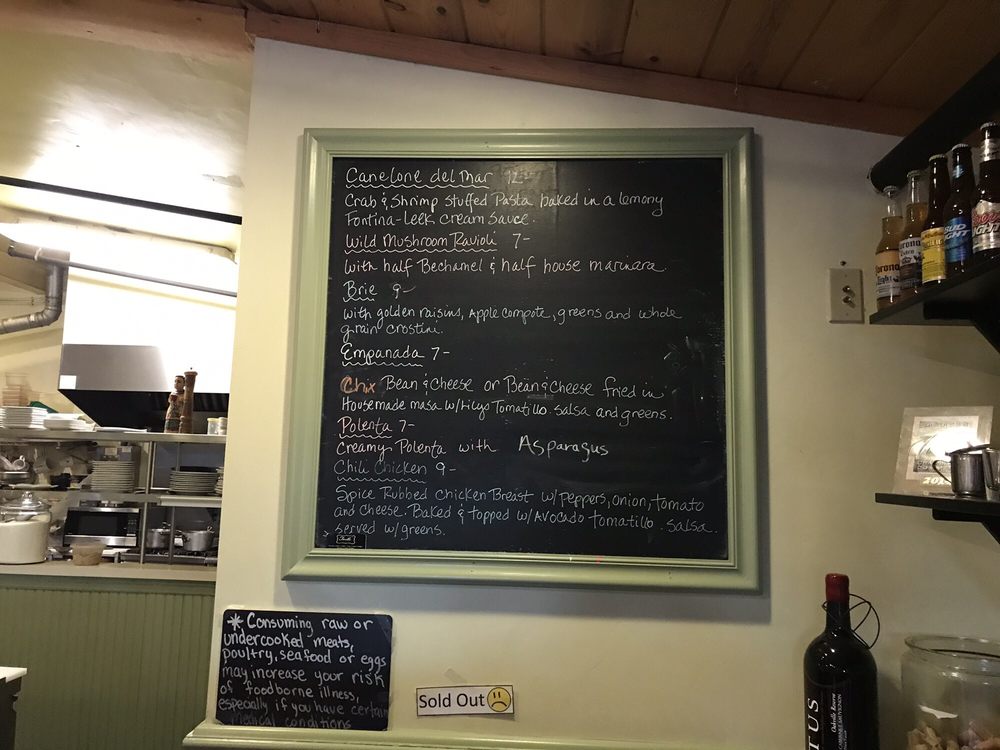 Canelone del Mar 12-
Crab & Shrimp stuffed Pasta baked in a lemony
Fontina-Leek cream sauce.
Wild Mushroom Ravioli 7-
with half Bechamel & half house marinara
Brie 9-
with golden raisins, Apple compote, greens and whole
grain crostini.
Empanada 7-
Chix Bean & Cheese or Bean & Cheese fried in
Housemade masa w/Lilys Tomatillo salsa and greens.
Polenta 7-
Creamy Polenta with Asparagus
Chili Chicken 9-
Spice Rubbed chicken Breast w/ Peppers, onion, tomato
and cheese. Baked & topped w/ Avocado tomatillo salsa.
served w/ greens.
* Consuming raw or
undercooked meats,
poultry, seafood or eggs
may increase your risk
of foodborne illness,
especially if you have certain
medical conditions
Sold Out
Corona
Corona
BUD
LIGHT
Coors
LIGHT
TUS
Oakville Reserve
CABERNET SAUVIGNON